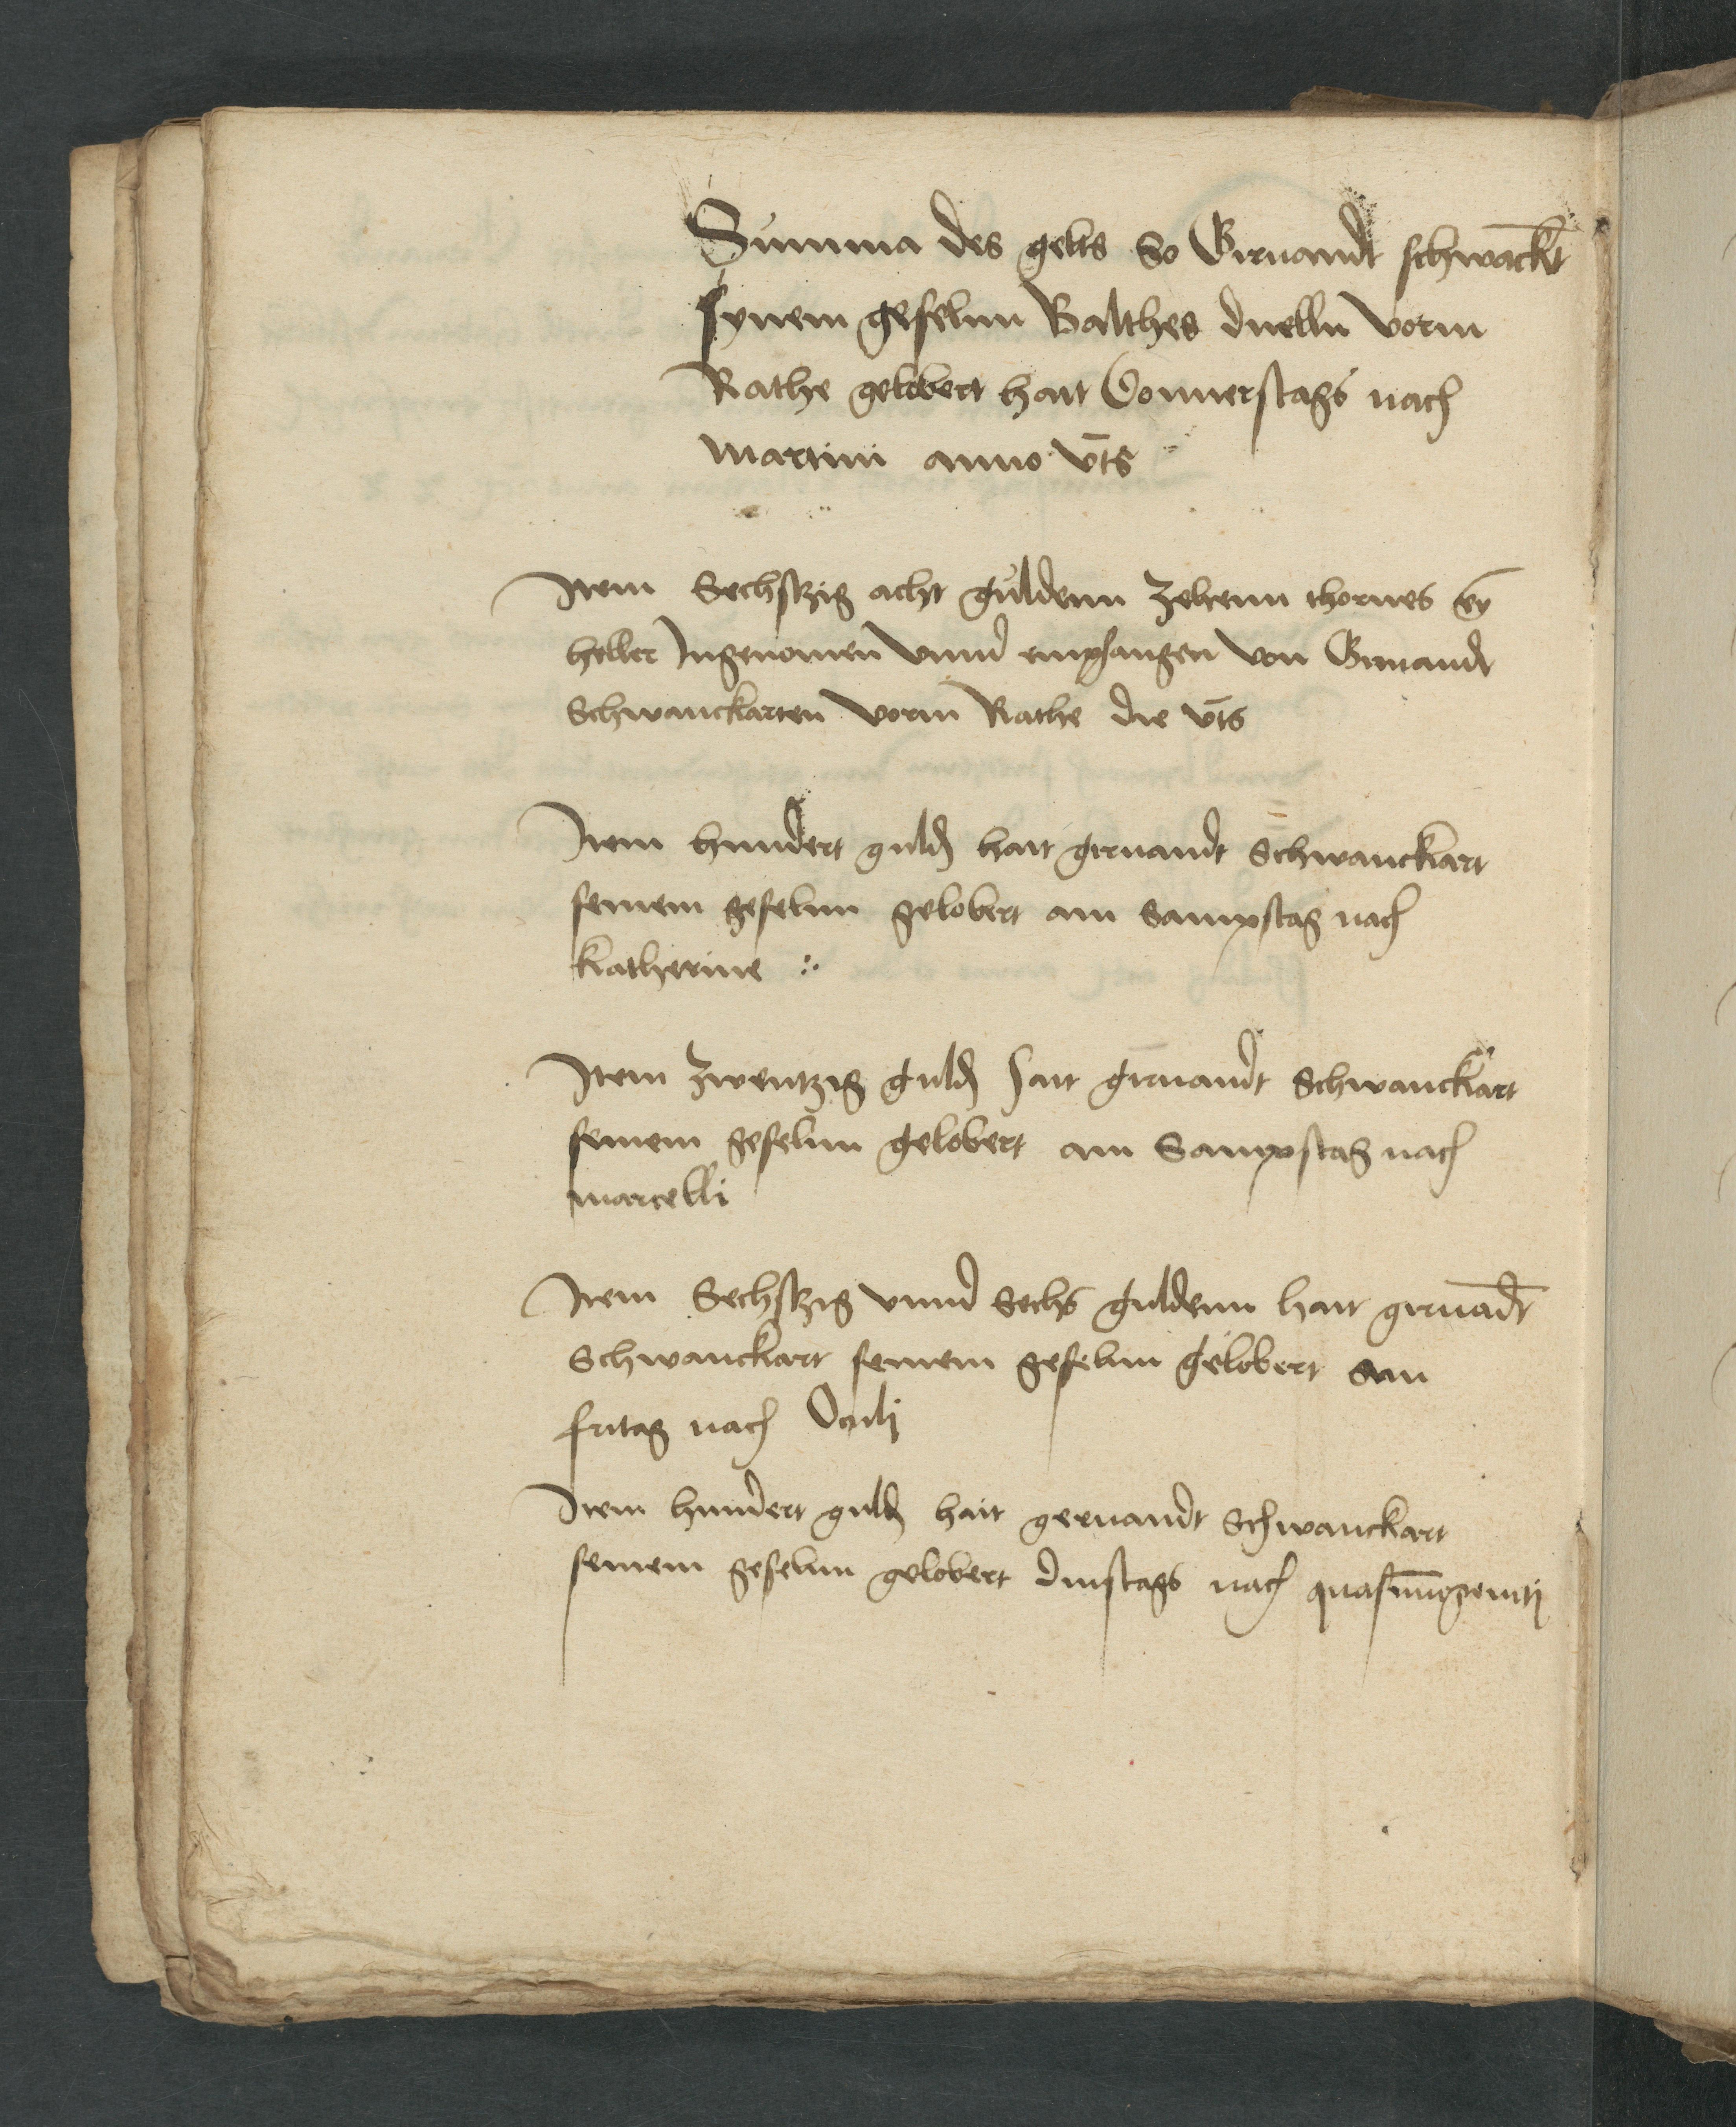 Summa des gelts So Gernandt schwāckt
synem geselnn Balthes duelln vorm
Rathe gelobert hait Donnerstags nach
martini anno vts
Item Sechstzig acht guldenn zehenn thornes vj
heller Ingenomen vnnd empfangen von Gernandt
Schwanckarten vorm Rathe die vts
Item hundert guld hait gernandt Schwanckart
seinem geselnn gelobert am Sampstag nach
Katherine
Item zwentzig guld hait gernandt Schwanckart
seinem geselnn gelobert am Sampstag nach
marcelli
Item Sechstzig vnnd Sechs guldenn hait gernādt
Schwanckart seinem geselnn gelobert am
fritag nach Oculj
Item hundert guld hait gernandt Schwanckart
seinem geselnn gelobert dinstags nach quasimogenitj